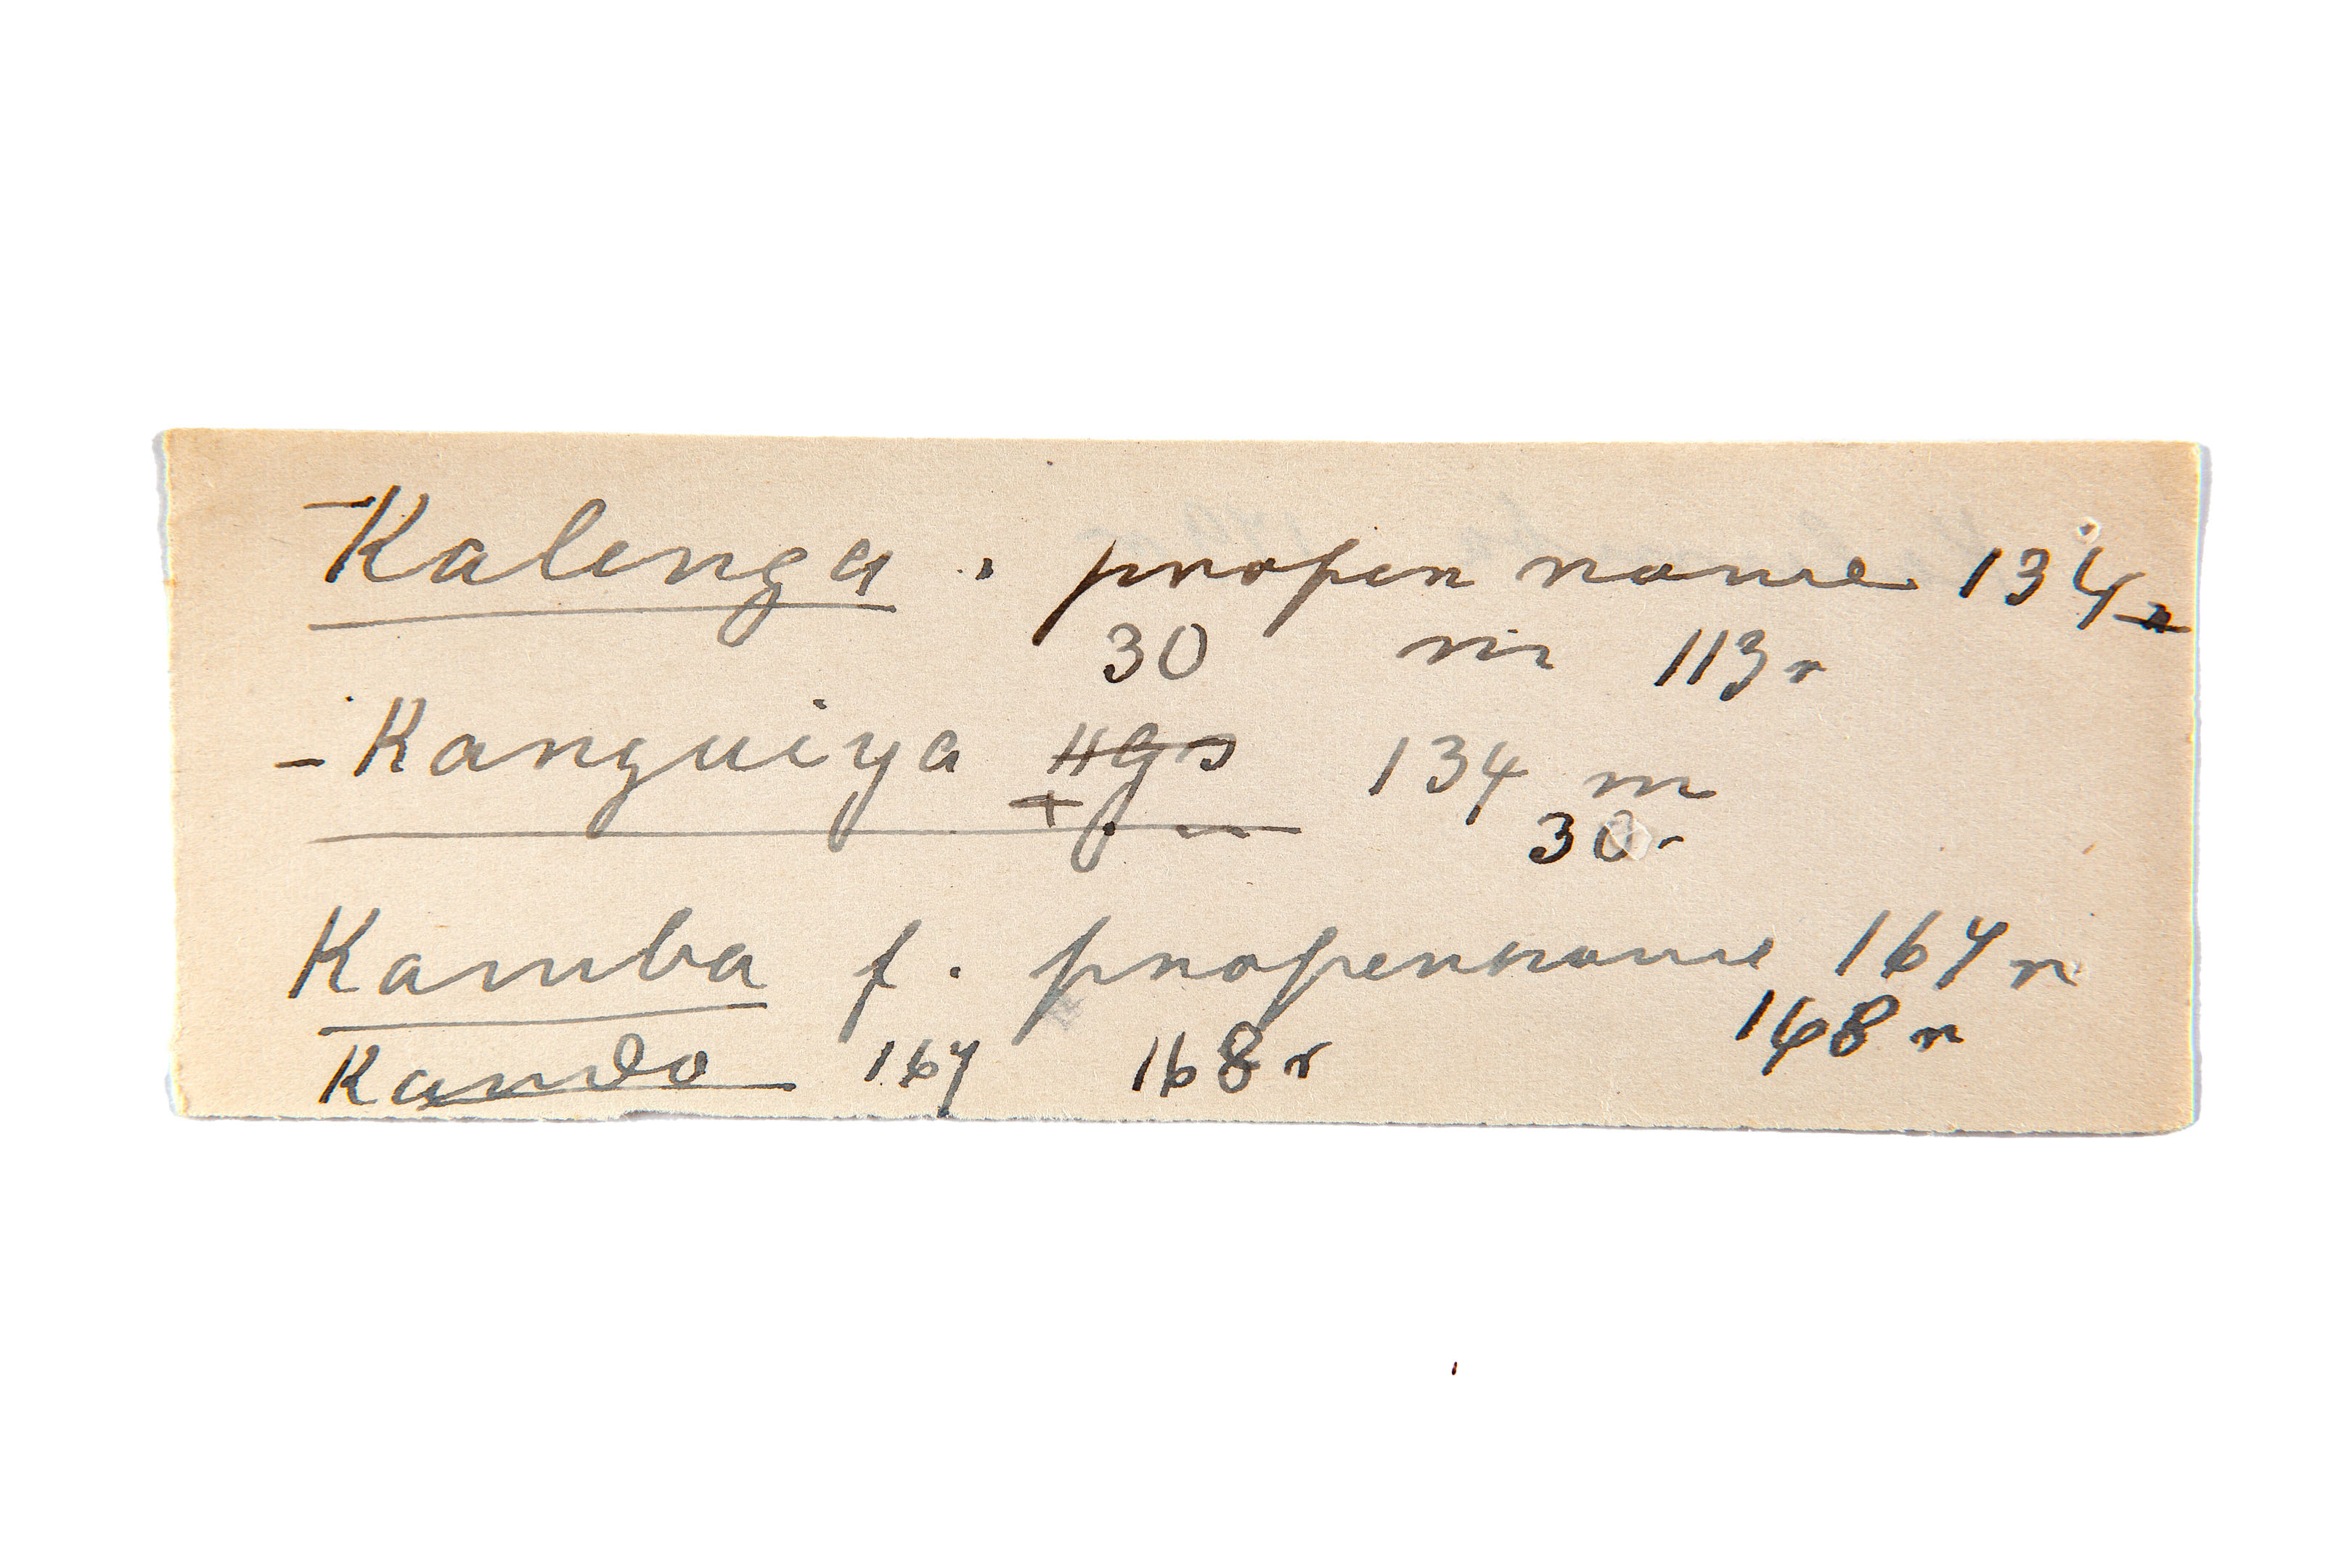 Kalenga . proper name 134 r
30 m 113 r
- Kanguiya 134 m
30 r
Kamba f. propername 167 r
168 r
Kando 167 168 r